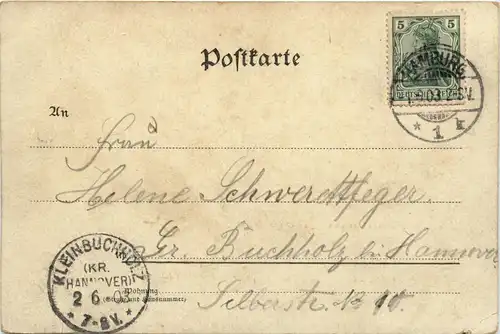 5 5
DEUTSCHES REICH
HAMBURG
* 1 k
Postkarte
An
Frau
Helene Schwerdtfeger
Gr. Buchholz bei Hannover
KLEINBUCHHOLZ
(KR. HANNOVER)
2 6 03
* 7-8V. *
Wohnung
(Straße und Hausnummer)
Silberstr.